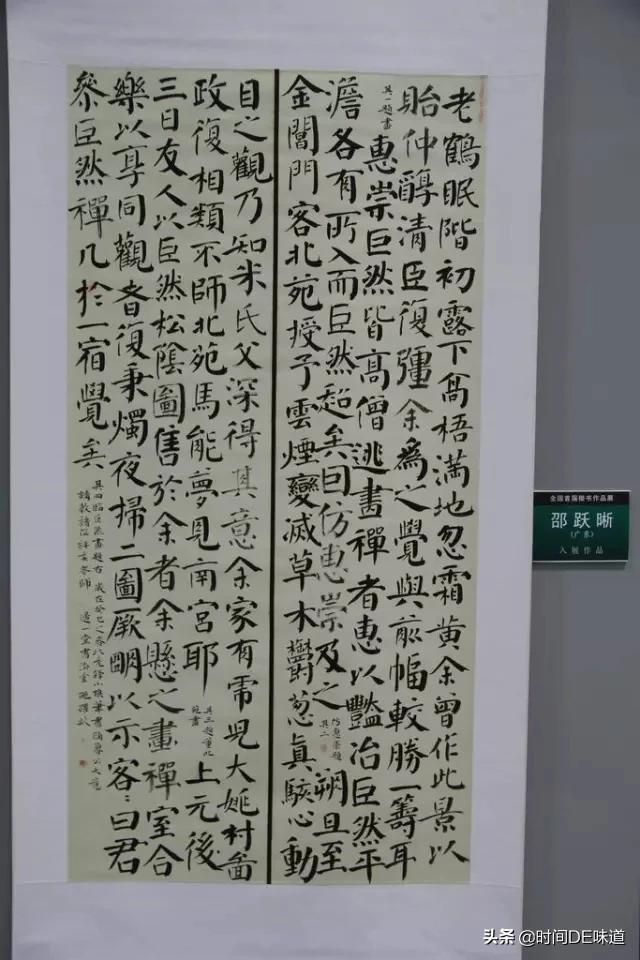 老鶴眠階初露下高梧滿地忽霜黃余曾作此景以
貽仲醇清臣復彊余為之覺與前幅較勝一籌耳
其一題畫
惠崇巨然皆高僧逃畫禪者惠以豔冶巨然平
澹各有所入而巨然超矣因仿惠崇及之
仿惠崇題其二
朔旦至
金閶門客北苑授予雲煙變滅草木鬱蔥真駭心動
目之觀乃知米氏父深得其意余家有児大姚村圖
政復相類不師北苑馬能夢見南宮耶
其三題董北苑畫
上元後
三日友人以巨然松陰圖售於余者余懸之畫禪室合
樂以享同觀者復秉燭夜掃二圖厥明以示客〻曰君
參巨然禪几於一宿覺矣
其四臨巨然畫題右 歲在癸巳之春
全国首届楷书作品展
邵跃晰
(广东)
入展作品
头条 @时间DE味道